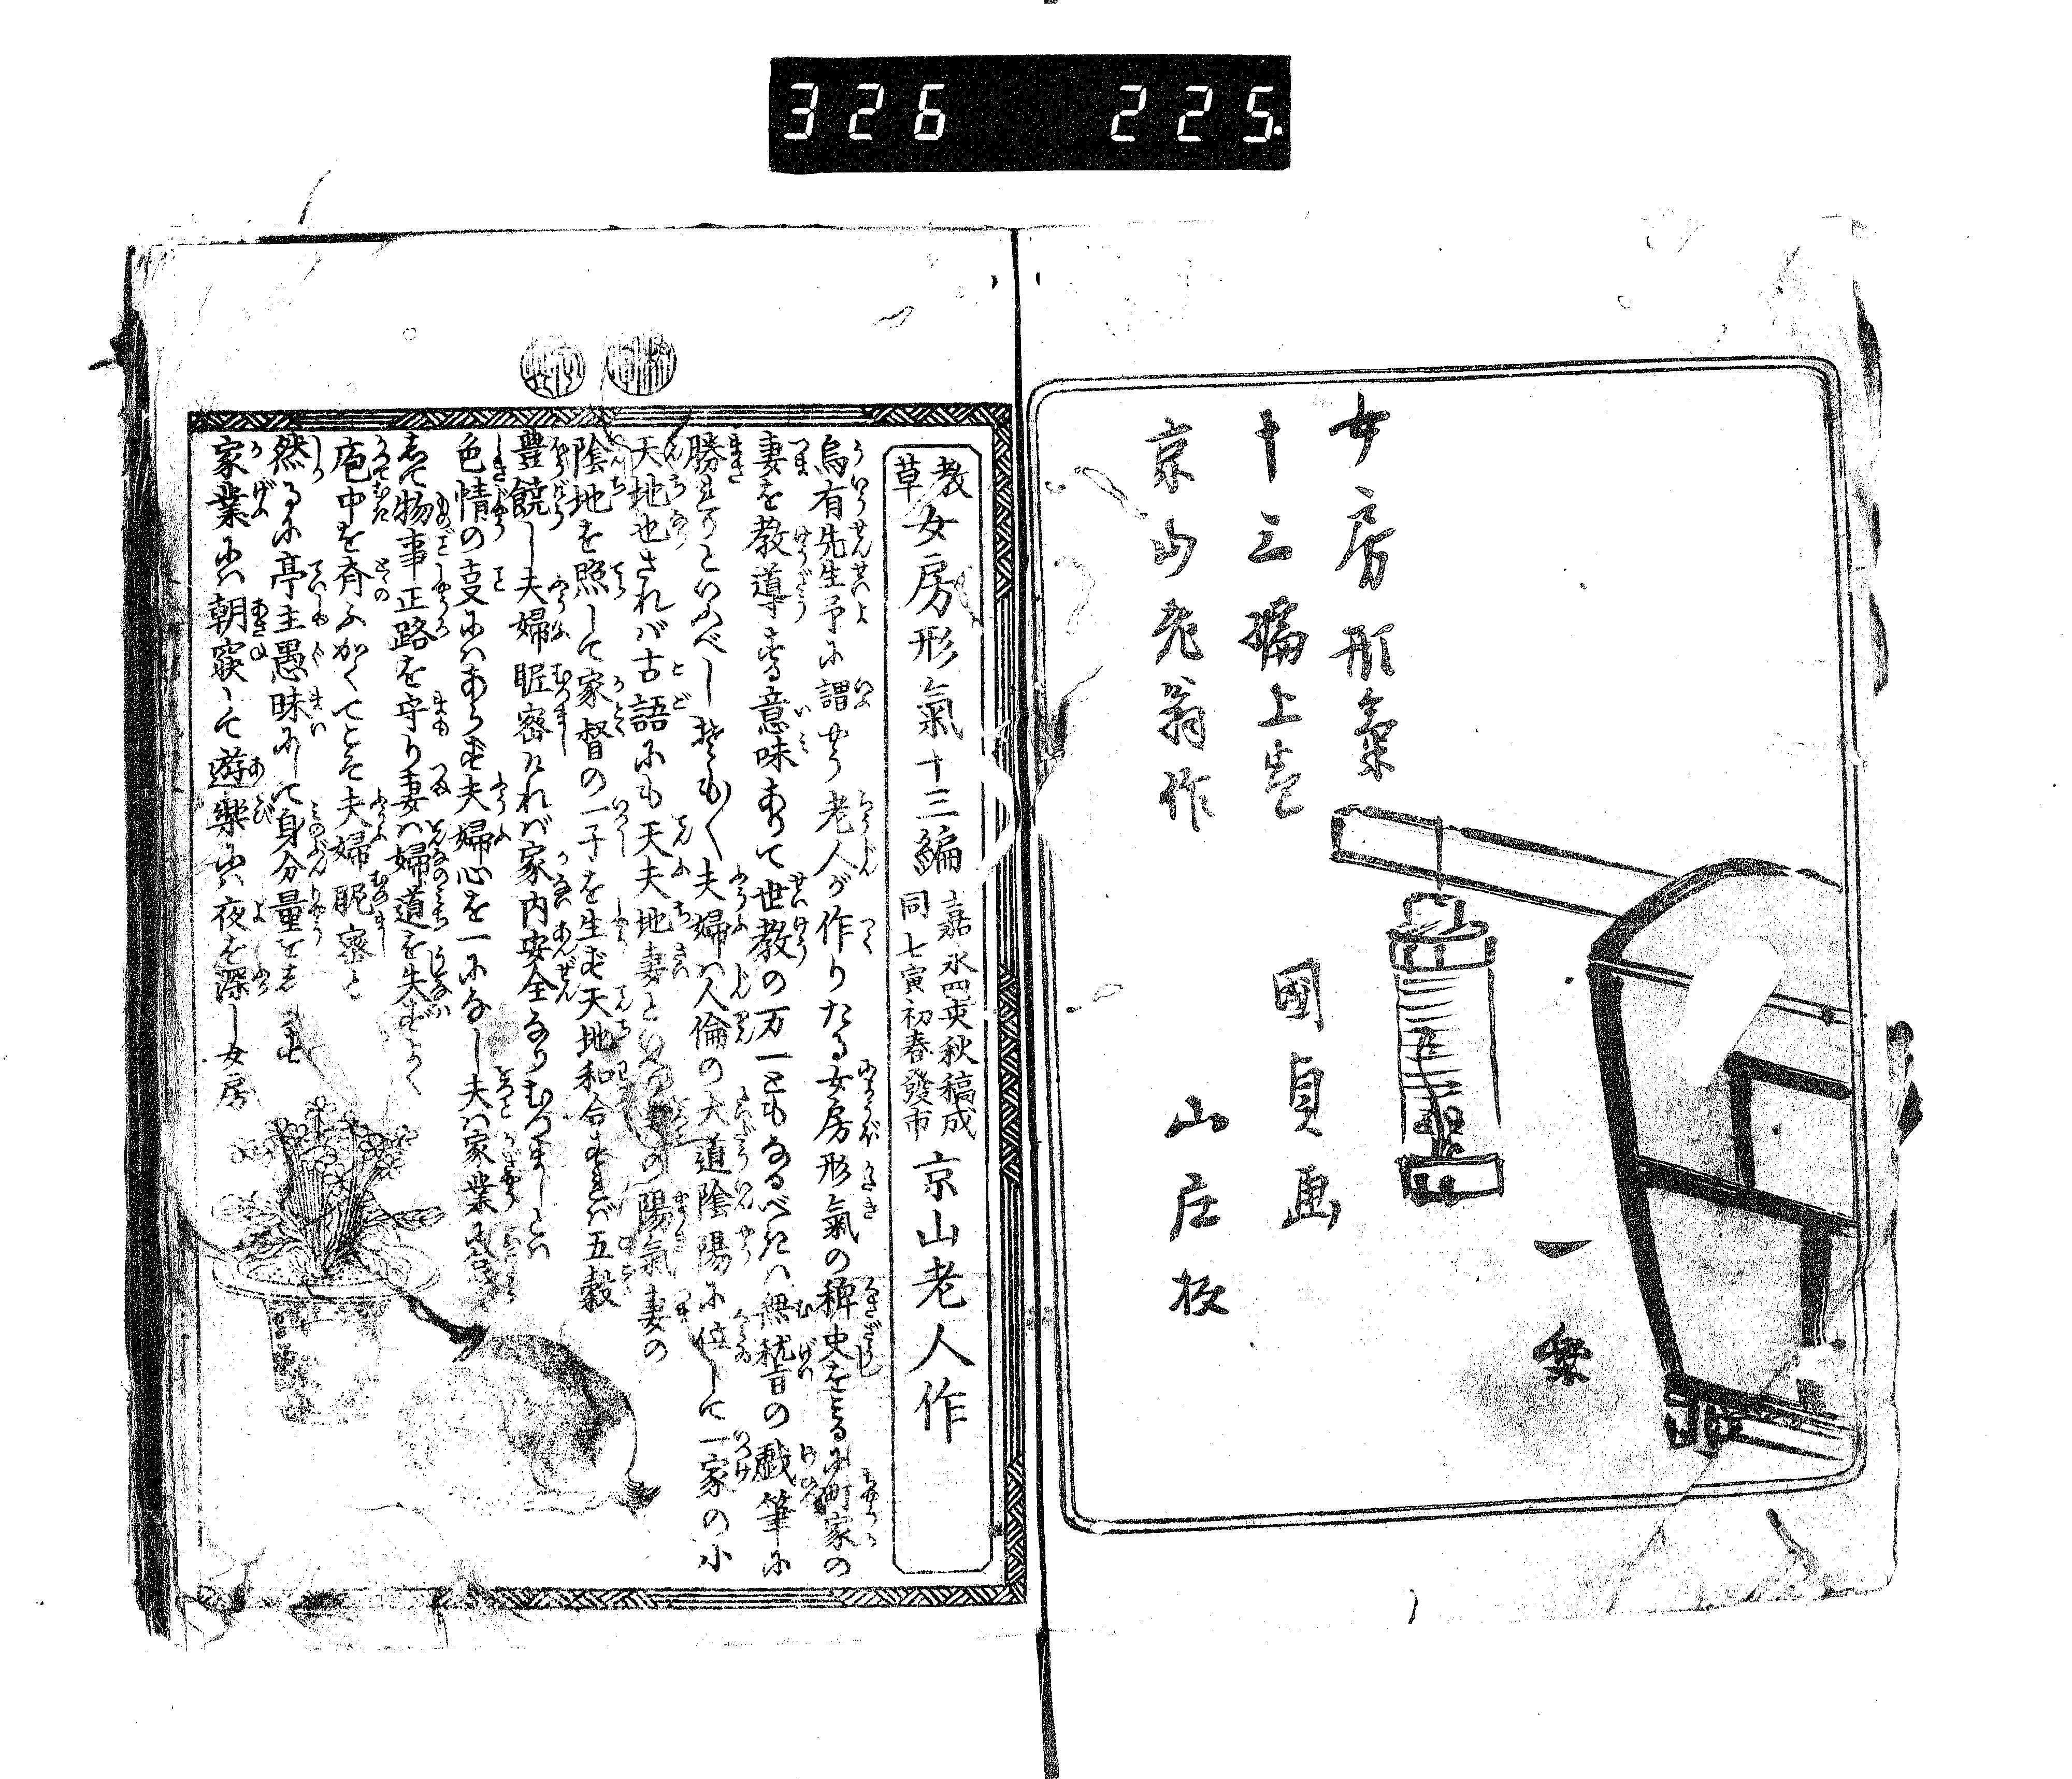 326 225
女房形氣
十三編上巻
京山老翁作
國貞画
山庄板
一樂
教草女房形氣十三編
嘉永四亥秋稿成
同七寅初春發市
京山老人作
烏有先生予に謂やう老人が作りたる女房形氣の稗史をみるに町家の
妻を教導する意味ありて世教の万一ともなるべければ無稽の戯筆に
勝れりといふべしそも〳〵夫婦は人倫の大道陰陽に位して一家の小
天地也されば古語にも天夫地妻といへり夫の陽氣妻の
陰地を照して家督の一子を生ず天地和合すれば五穀
豊饒し夫婦昵密なれば家内安全なりむつましとは
色情の支にはあらず夫婦心を一になし夫は家業
物事正路を守り妻は婦道を失ずよく
庖中を斉ふかくてこそ夫婦昵密と
然るに亭主愚昧にして身分量を
家業には朝寝して遊樂には夜を深し女房